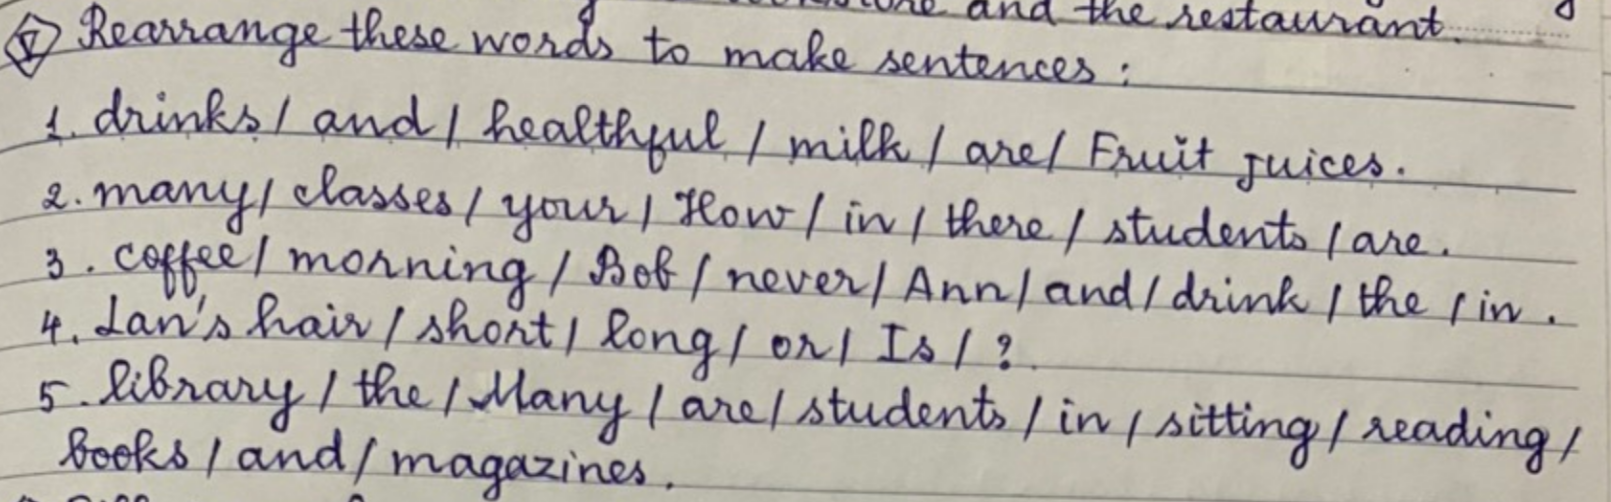 and the restaurant.
V Rearrange these words to make sentences :
1. drinks / and / healthful / milk / are / Fruit juices.
2. many / classes / your / How / in / there / students / are.
3. coffee / morning / Bob / never / Ann / and / drink / the / in.
4. Lan's hair / short / long / or / Is / ?
5. library / the / Many / are / students / in / sitting / reading /
books / and / magazines.